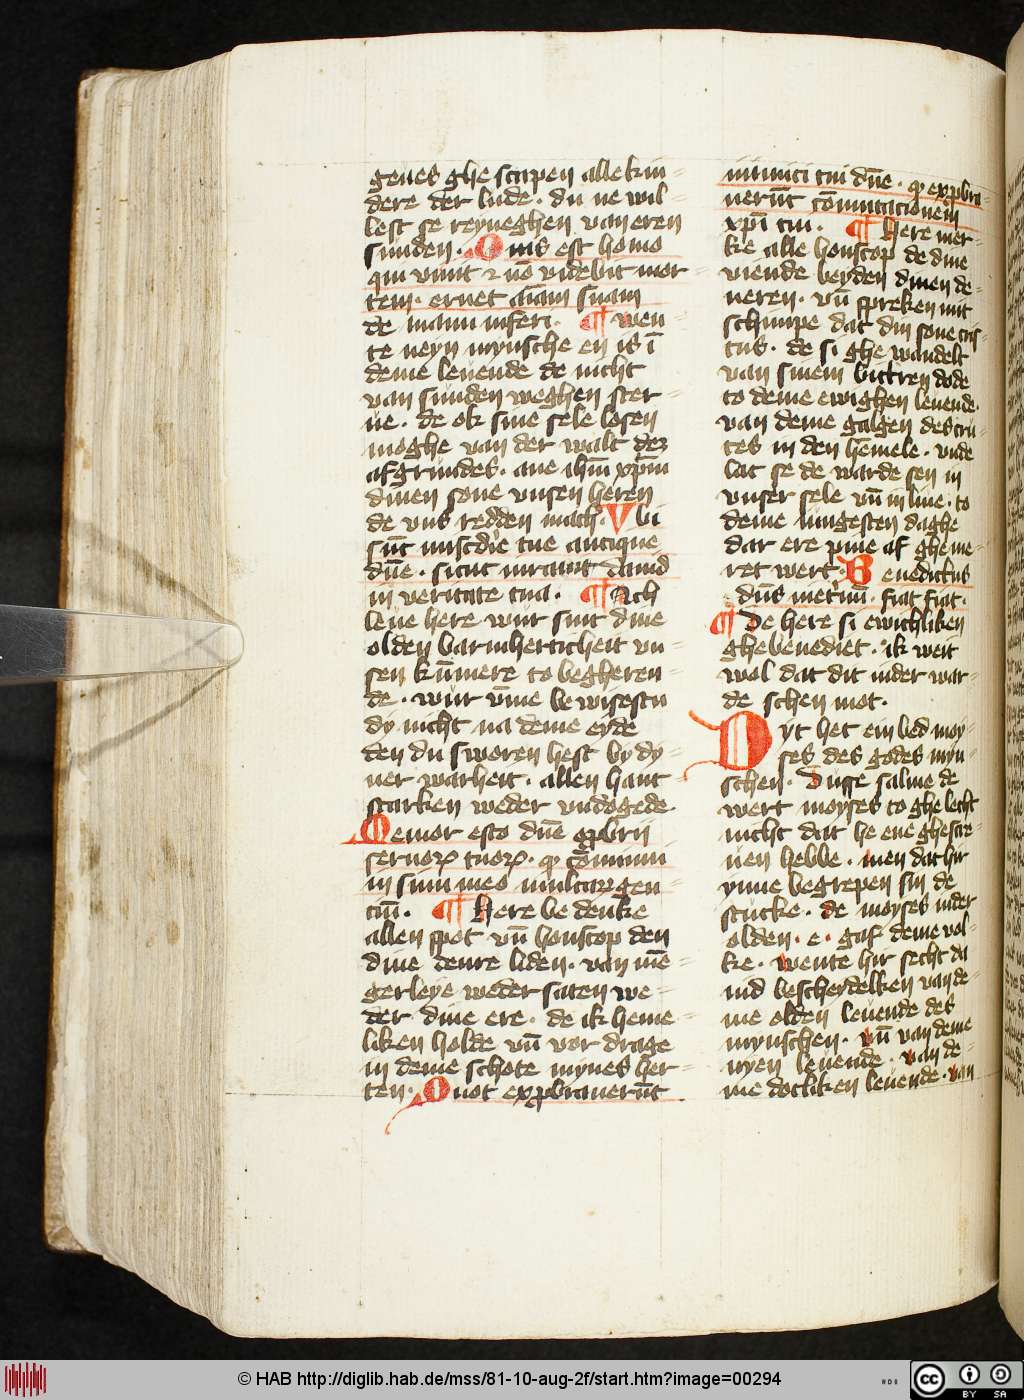 geues ghe scapen alle kin-
dere der lude. du ne wil-
lest se reyneghen van eren
sunden. Quis est homo
qui viuit ⁊ nō videbit mor-
tem. eruet aīam suam
de manu inferi. ¶ wen-
te neyn mynsche en is ī
deme leuende de nicht
van sunden weghen ster-
ue. de ok sine sele losen
moghe van der walt dez
afgrundes. ane ihm̄ xpm̄
dinen sone vnsen heren
de vns redden mach. Vbi
sūt miscdie tue antique
dn̄e. sicut iurasti dauid
in veritate tua. ¶ Ach
leue here wur sint dine
olden barmherticheit vn-
sen kūmere to begheren-
de. wur vm̄e bewisestu
dy nicht na deme eyde
den du sworen hest by dy-
ner warheit. allen hant
starken weder vndogede.
Memor esto dn̄e opprbrii
seruoꝝ tuoꝝ. qͦ continui
in sinu meo multarꝝ gen-
tiū. ¶ Here be denke
allen spot vn̄ honscop den
dine denre liden. van mē-
gerleye weder saten we-
der dine ere. de ik heme-
liken holde vn̄ vor drage
in deme schote mynes her-
ten. Quot exprbrauerūt
inimici tui dn̄e. qͦ exprbra-
uerūt cōmutacionem
xpī tui. ¶ Here mer-
ke alle honscop de dine
viende beyden dinen de-
neren. vn̄ spreken mit
schimpe dat din sone cris-
tus. de si ghe wandelt
van sinem bittren dode
to deme ewighen leuende.
van deme galgen des cru-
ces in den hemele. vnde
lat se de warde sen in
vnser sele vn̄ in liue. to
deme iungesten daghe
dar ere pine af gheme-
ret wert. Benedictus
dn̄s in etnū. fiat fiat.
¶ De here si ewichliken
ghebenediet. ik weit
wol dat dit inder war-
de schen mot.
Dyt het ein bed moy-
ses des godes myn-
schen. Dusse salme de
wert moyses to ghe lecht
nicht dat he ene ghescre-
uen hebbe. men dat hir
ynne begrepen sin de
stucke. de moyses inder
olden. e. gaf deme vol-
ke. wente hir secht da
uid bescheydelken van de
me olden leuende des
mynschen. vn̄ van deme
nyen leuende. van de-
me dotliken leuende. van
© HAB http://diglib.hab.de/mss/81-10-aug-2f/start.htm?image=00294
cc BY SA